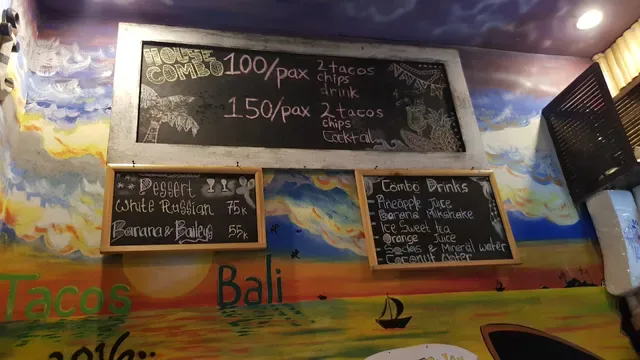 HOUSE
COMBO
100/pax 2 tacos
chips
drink
150/pax 2 tacos
chips
Cocktail
Dessert
White Russian 75k
Banana & Baileys 55k
Combo Drinks
Pineapple Juice
Banana Milkshake
Ice Sweet tea
Orange Juice
Sodas & Mineral water
Coconut Water
Tacos Bali